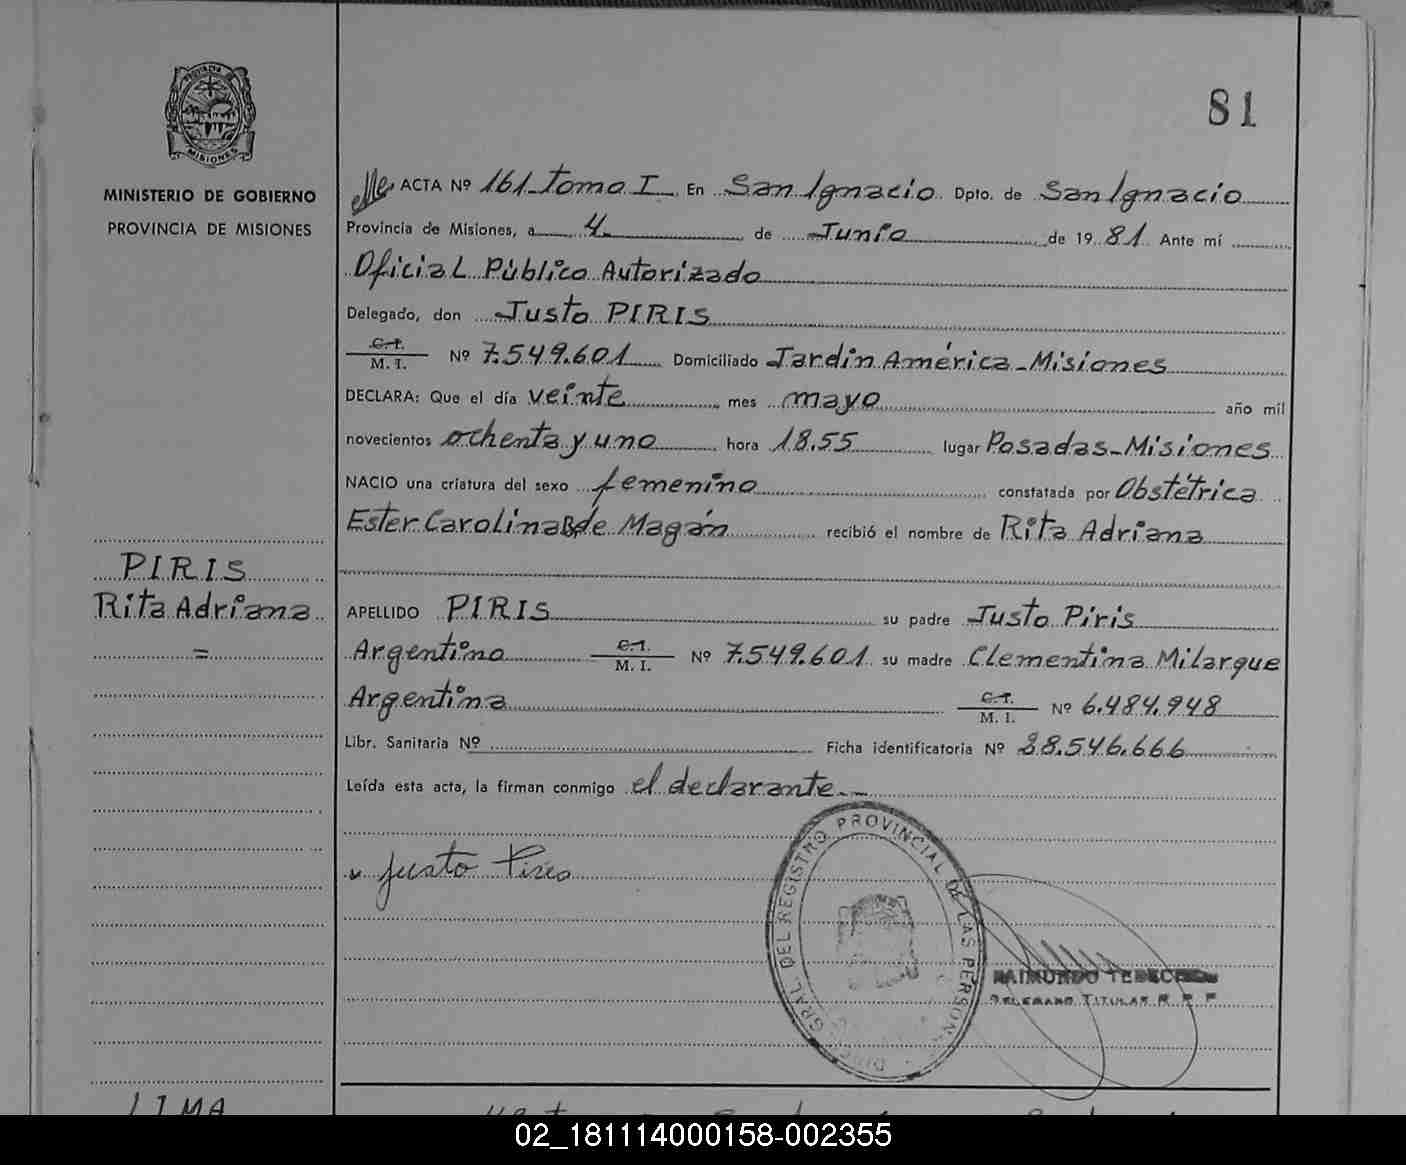 81
PROVINCIA DE
MISIONES
MINISTERIO DE GOBIERNO
PROVINCIA DE MISIONES
ACTA Nº 161 - tomo I En San Ignacio Dpto. de San Ignacio
Provincia de Misiones, a 4 de Junio de 1981 Ante mí
Oficial Público Autorizado
Delegado, don Justo PIRIS
C. I.
M. I. Nº 7.549.601 Domiciliado Jardín América - Misiones
DECLARA: Que el día veinte mes mayo año mil
novecientos ochenta y uno hora 18.55 lugar Posadas - Misiones
NACIO una criatura del sexo femenino constatada por Obstétrica
Ester Carolina B. de Magán recibió el nombre de Rita Adriana
PIRIS
Rita Adriana
=
APELLIDO PIRIS su padre Justo Piris
Argentino C. I.
M. I. Nº 7.549.601 su madre Clementina Milarque
Argentina C. I.
M. I. Nº 6.484.948
Libr. Sanitaria Nº Ficha identificatoria Nº 28.546.666
Leída esta acta, la firman conmigo el declarante.--
Justo Piris
GRAL DEL REGISTRO PROVINCIAL DE LAS PERSONAS
RAIMUNDO
DELEGADO TITULAR R P P
LIMA
02_181114000158-002355